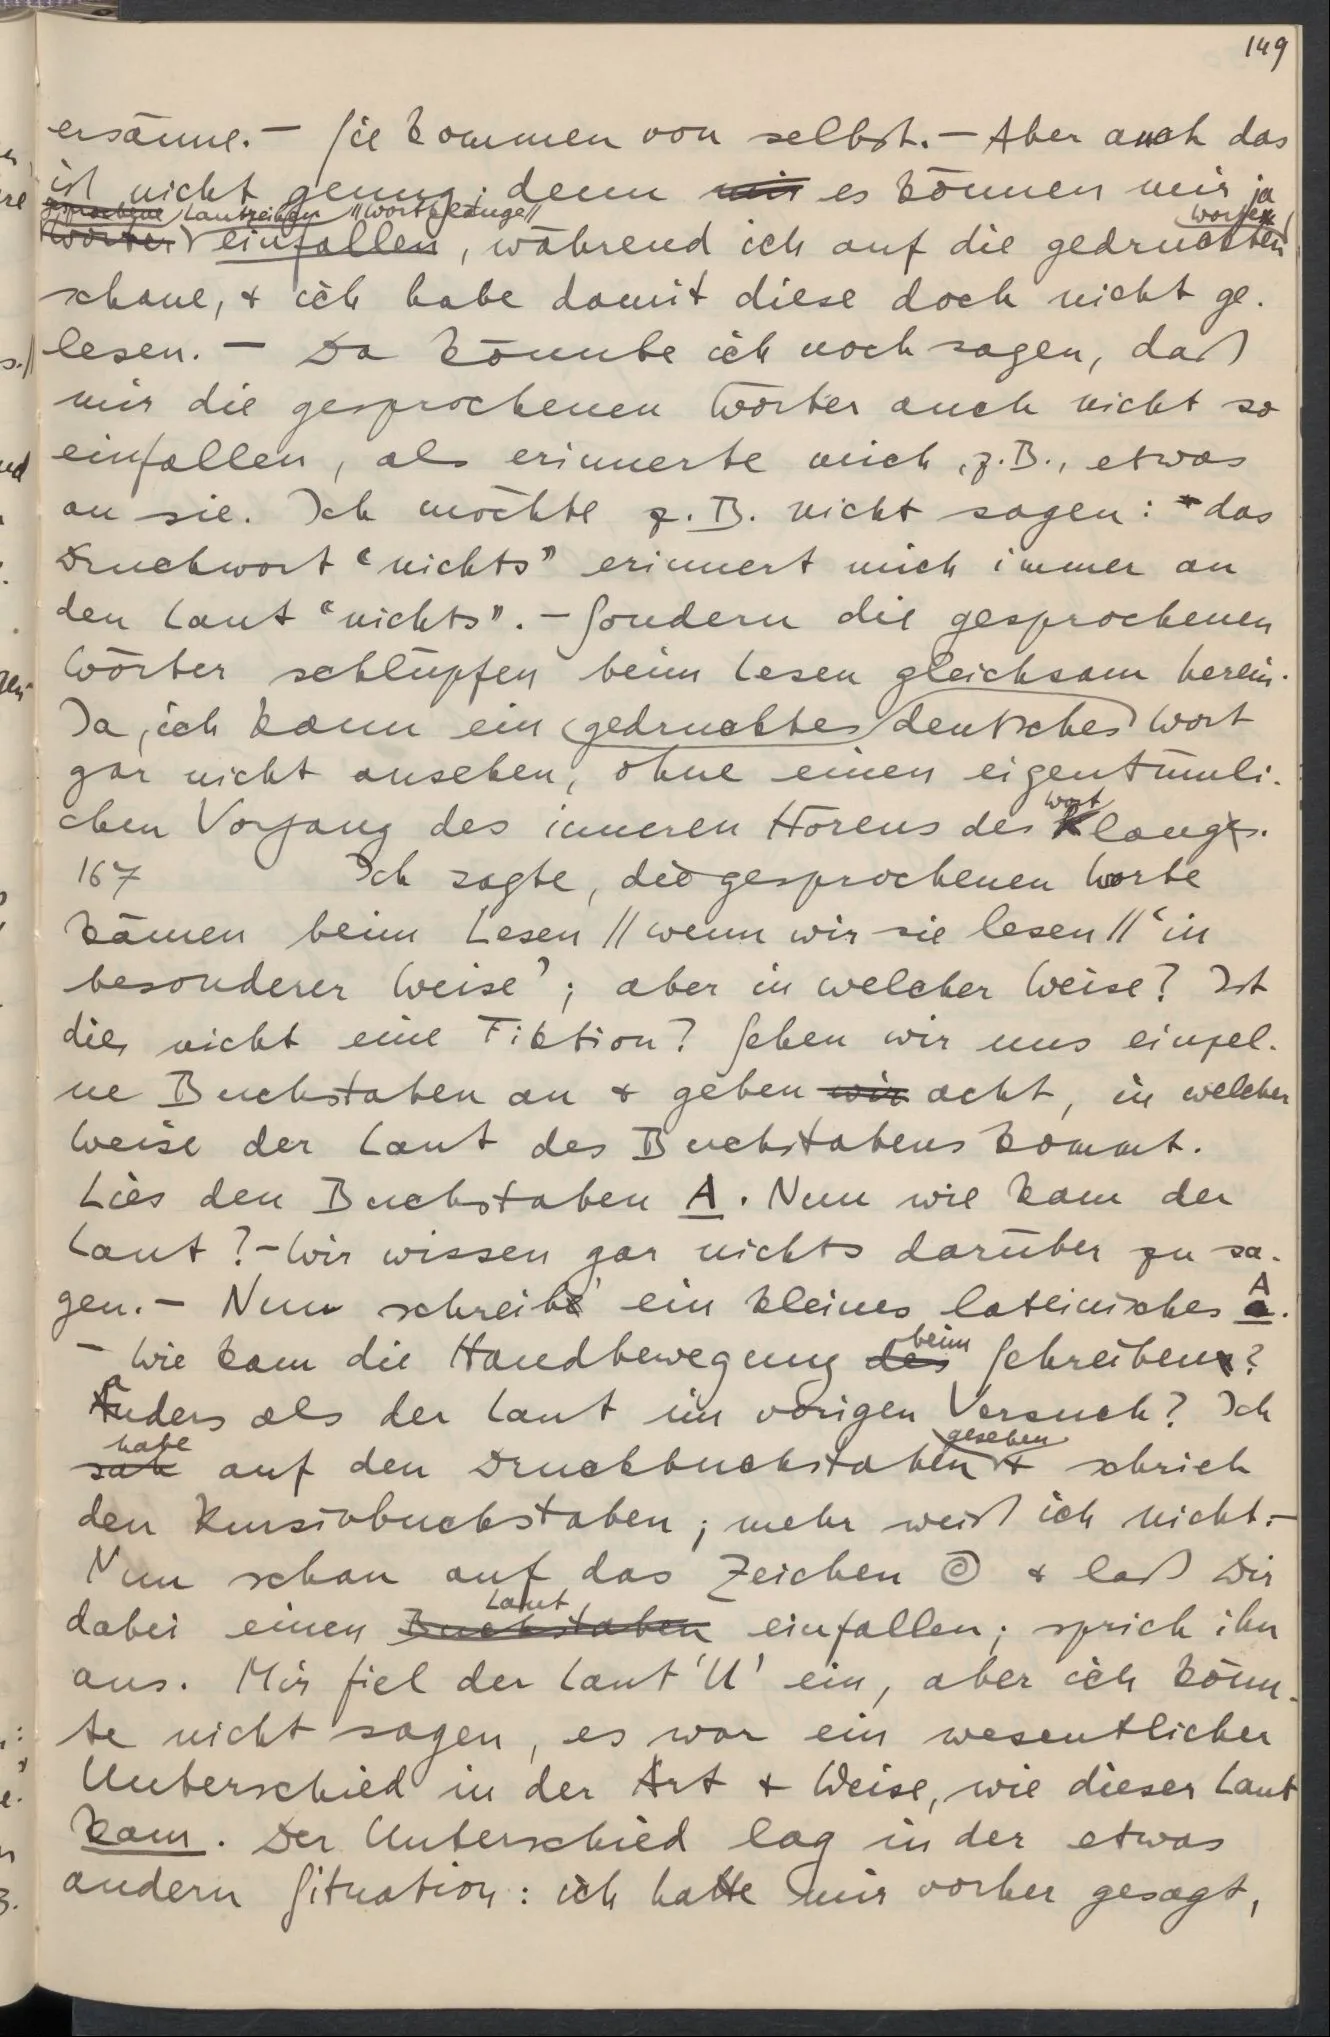 149
ersänne. – Sie kommen von selbst. – Aber auch das
ist nicht genug; denn mir es können mir ja
gesprochene Lautreihen //Wortklänge// Worte
Wörter einfallen, während ich auf die gedruckten
schaue, & ich habe damit diese doch nicht ge-
lesen. – Da könnte ich noch sagen, daß
mir die gesprochenen Wörter auch nicht so
einfallen, als erinnerte mich, z.B., etwas
an sie. Ich möchte z.B. nicht sagen: das
Druckwort “nichts” erinnert mich immer an
den Laut “nichts”. – Sondern die gesprochenen
Wörter schlüpfen beim Lesen gleichsam herein.
Ja, ich kann ein gedrucktes deutsches Wort
gar nicht ansehen, ohne einen eigentümli-
chen Vorgang des inneren Hörens des Wort
Klangs.
167 Ich sagte, die gesprochenen Worte
kämen beim Lesen // wenn wir sie lesen // ‘in
besonderer Weise’; aber in welcher Weise? Ist
dies nicht eine Fiktion? Sehen wir uns einzel-
ne Buchstaben an & geben wir acht, in welcher
Weise der Laut des Buchstabens kommt.
Lies den Buchstaben A. Nun wie kam der
Laut? – Wir wissen gar nichts darüber zu sa-
gen. – Nun schreib' ein kleines lateinisches a A.
– Wie kam die Handbewegung des beim Schreiben?
Anders als der Laut im vorigen Versuch? Ich
sah habe auf den Druckbuchstaben gesehen & schrieb
den Kursivbuchstaben; mehr weiß ich nicht. –
Nun schau auf das Zeichen © & laß Dir
dabei einen Buchstaben Laut einfallen; sprich ihn
aus. Mir fiel der Laut ‘U’ ein, aber ich könn-
te nicht sagen, es war ein wesentlicher
Unterschied in der Art & Weise, wie dieser Laut
kam. Der Unterschied lag in der etwas
andern Situation: ich hatte mir vorher gesagt,